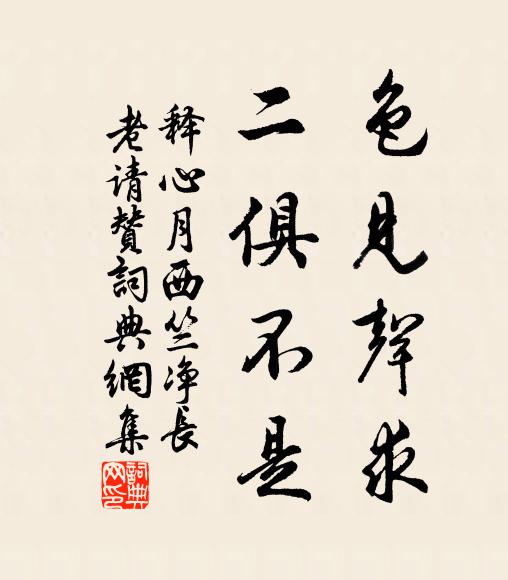 色見聲求
二俱不是
釋心月西竺淨長
老请贊詞典網集
詞典
网印